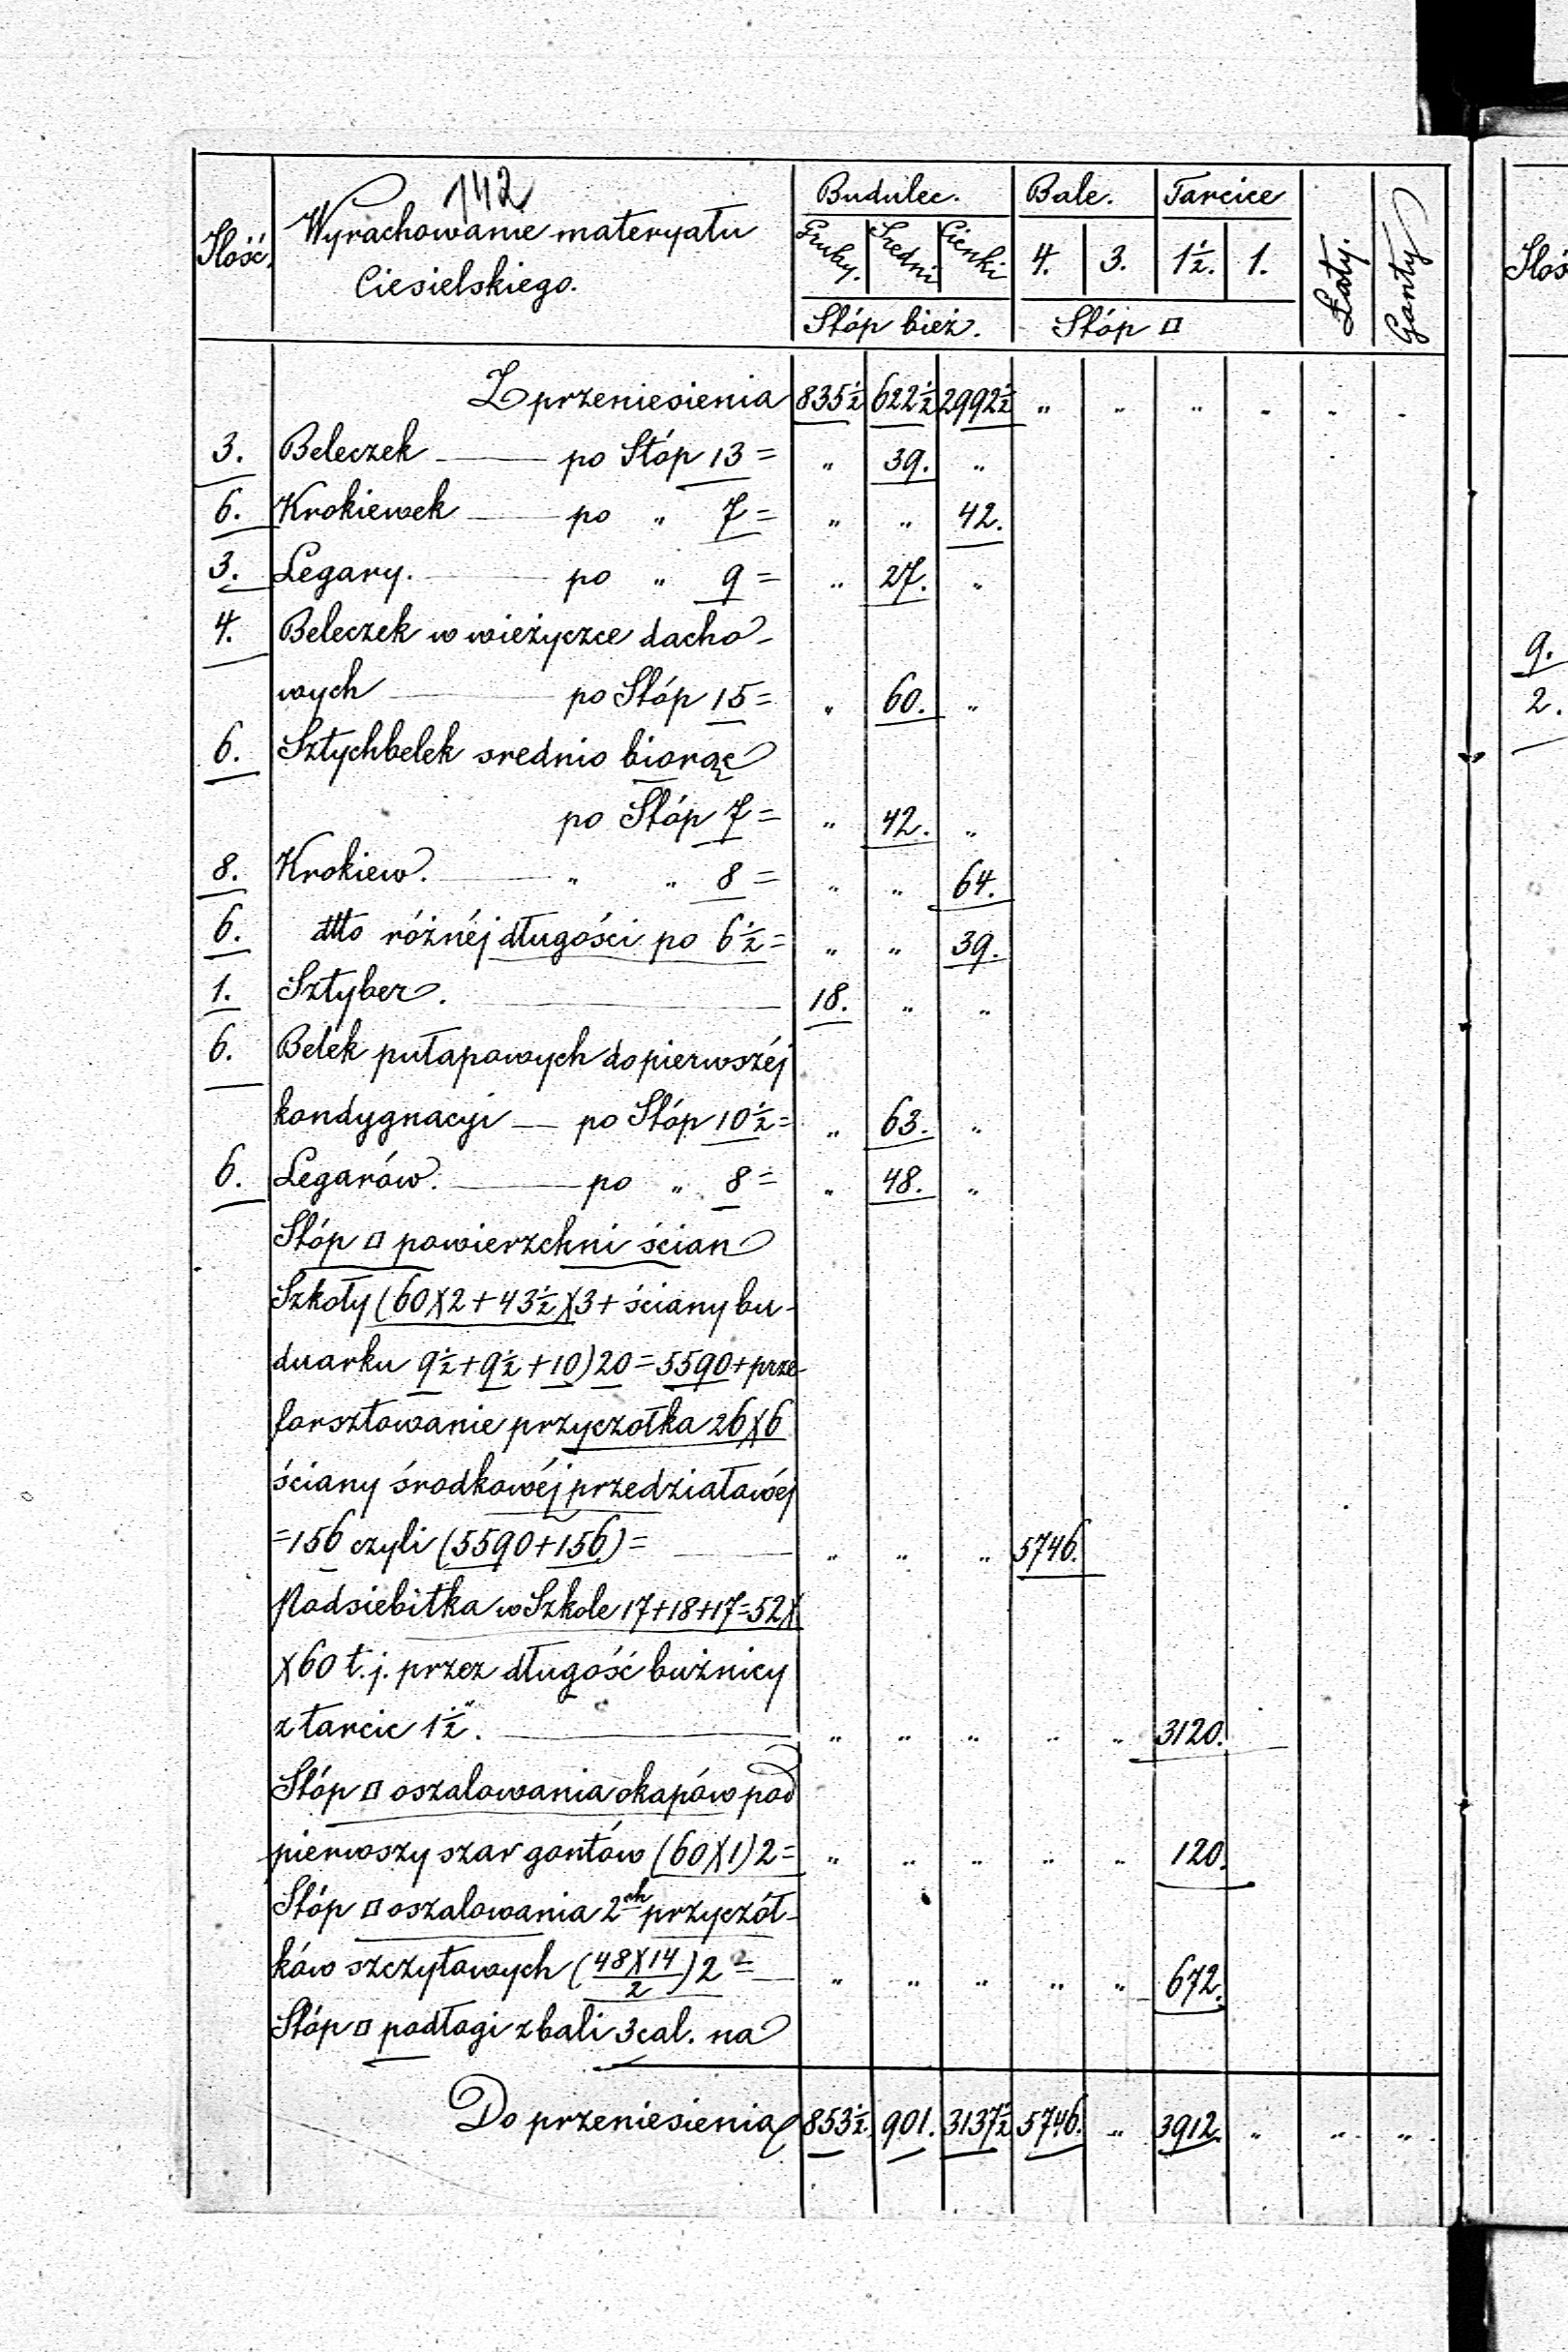 142
Ilość.
Wyrachowanie materyału
Ciesielskiego.
Budulec.
Bale.
Tarcice
Gruby.
Szedni
Cienki
4.
3.
1½.
1.
Łaty.
Gonty
Stóp bież.
Stóp □
Z przeniesienia 835½ 622½ 2992½ " " " " " "
3. Beleczek — po Stóp 13 = " 39. "
6. Krokiewek — po " 7 = " " 42.
3. Legary. — po " 9 = " 27. "
4. Beleczek w wieżyczce dacho-
wych — po Stóp 15 = " 60. "
6. Sztychbelek srednio biorąc
po Stóp 7 = " 42. "
8. Krokiew. — " " 8 = " " 64.
6. dtto różnéj długości po 6½ = " " 39.
1. Sztyber. — 18. " "
6. Belek pułapowych do pierwszéj
kondygnacyi — po Stóp 10½ = " 63. "
6. Legarów. — po " 8 = " 48. "
Stóp □ powierzchni ścian
Szkoły (60X2+43½X3+ściany bu-
duarku 9½+9½+10)20=5590+prze-
forsztowanie przyczołka 26X6
ściany środkowéj przedziałowéj
=156 czyli (5590+156)= — " " " 5746.
Podsiebitka w Szkole 17+18+17=52X
X60 t.j. przez długość bużnicy
z tarcic 1½". — " " " " " 3120.
Stóp □ oszalowania okapów pod
pierwszy szar gontów (60X1)2= " " " " " 120.
Stóp □ oszalowania 2ch przyczół-
ków szczytowych (48X14/2)2= — " " " " " 672.
Stóp □ podłogi z bali 3 cal. na
Do przeniesienia 853½. 901. 3137½ 5746. " 3912. " " "
Iloś
9.
2.